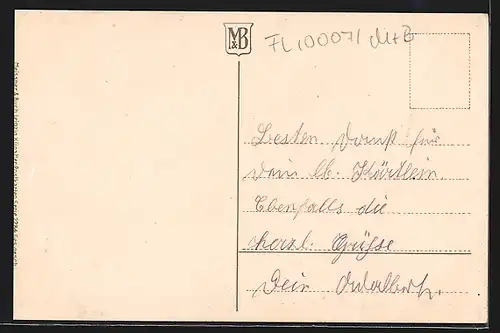 M&B
FL 100071 M+B
Besten Dank für
Dein lb. Kärtlein
Ebenfalls die
herzl. Grüsse
Dein Adalbert.